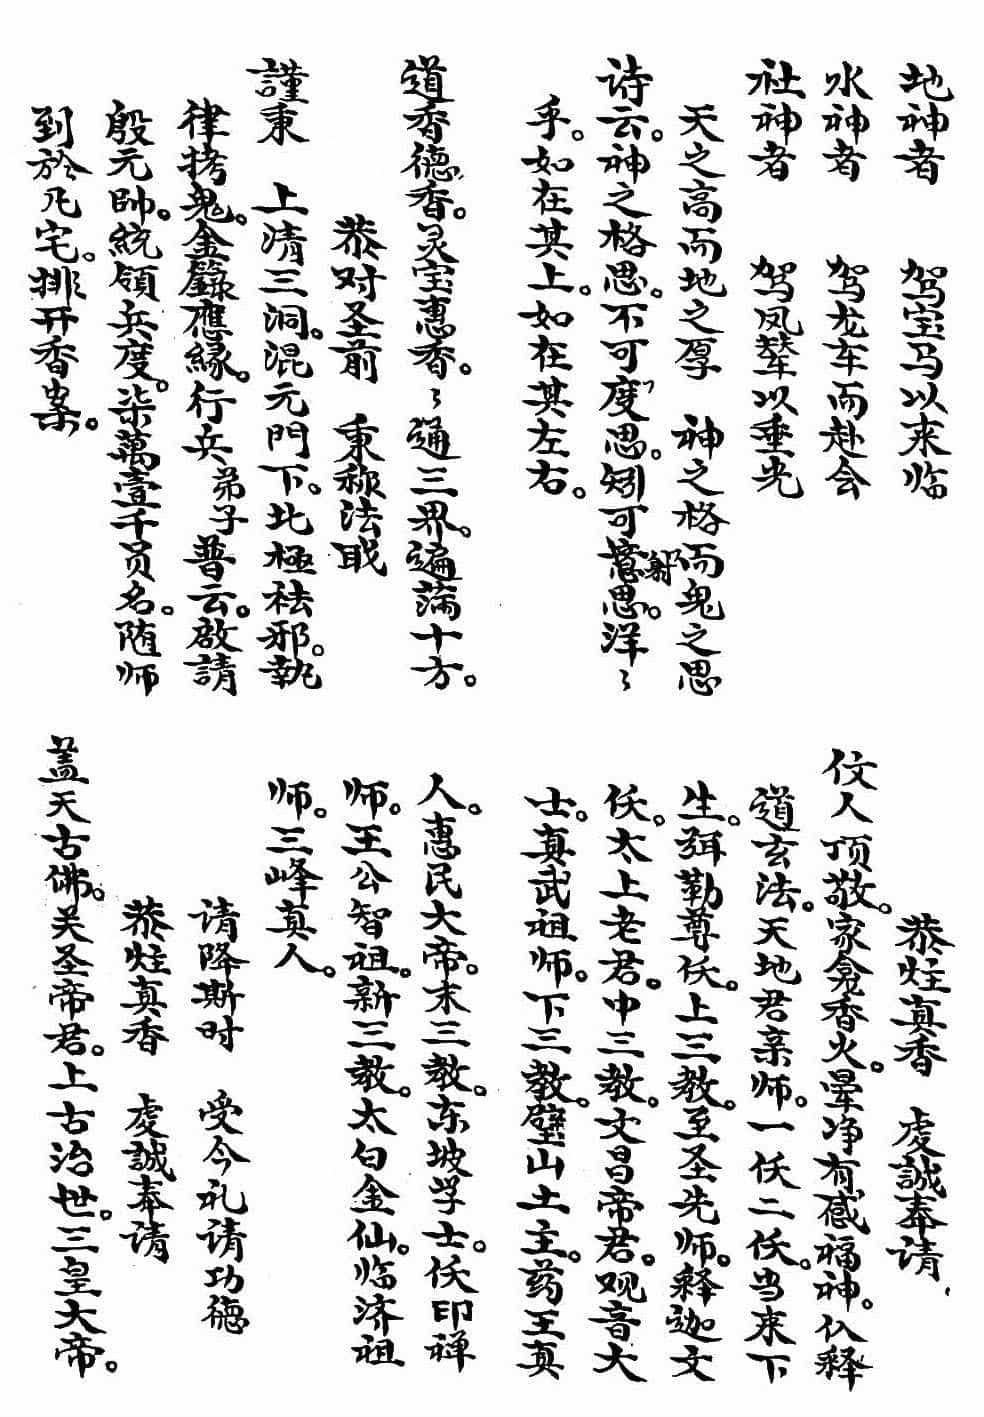 地神者 驾宝马以来临
水神者 驾龙车而赴会
社神者 驾凤辇以垂光
天之高而地之厚 神之格而鬼之思
诗云。神之格思。不可度思。矧可意射思。洋〻
乎。如在其上。如在其左右。
道香德香。灵宝惠香。〻通三界。遍满十方。
恭对圣前 秉称法职
謹秉 上清三洞。混元門下。北極祛邪。執
律拷鬼。金籙應緣。行兵弟子 普云。啟請
殷元帥。統領兵度。柒萬壹千员名。随师
到於凡宅。排开香案。
恭炷真香 虔誠奉请
伩人顶敬。家龛香火。晕净有感福神。仈释
道玄法。天地君亲师。一仸二仸。当来下
生。弥勒尊仸。上三教。至圣先师。释迦文
仸。太上老君。中三教。文昌帝君。观音大
士。真武祖师。下三教。壁山土主。药王真
人。惠民大帝。末三教。东坡学士。仸印禅
师。王公智祖。新三教。太白金仙。临济祖
师。三峰真人。
请降斯时 受今礼请功德
恭炷真香 虔誠奉请
盖天古佛。关圣帝君。上古治世。三皇大帝。